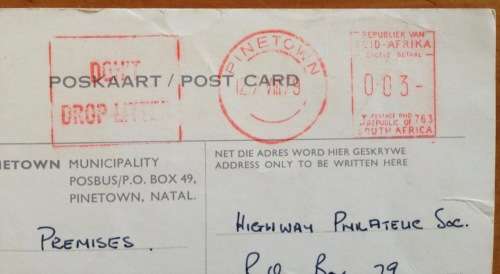 DON'T
DROP LITTER
PINETOWN
VIII 79
REPUBLIEK VAN
SUID-AFRIKA
0·03-
POSTAGE PAID
REPUBLIC OF 763
SOUTH AFRICA
POSKAART / POST CARD
NETOWN MUNICIPALITY
POSBUS/P.O. BOX 49,
PINETOWN, NATAL.
NET DIE ADRES WORD HIER GESKRYWE
ADDRESS ONLY TO BE WRITTEN HERE
PREMISES.
HIGHWAY PHILATELIC SOC.
P.O. Box 29